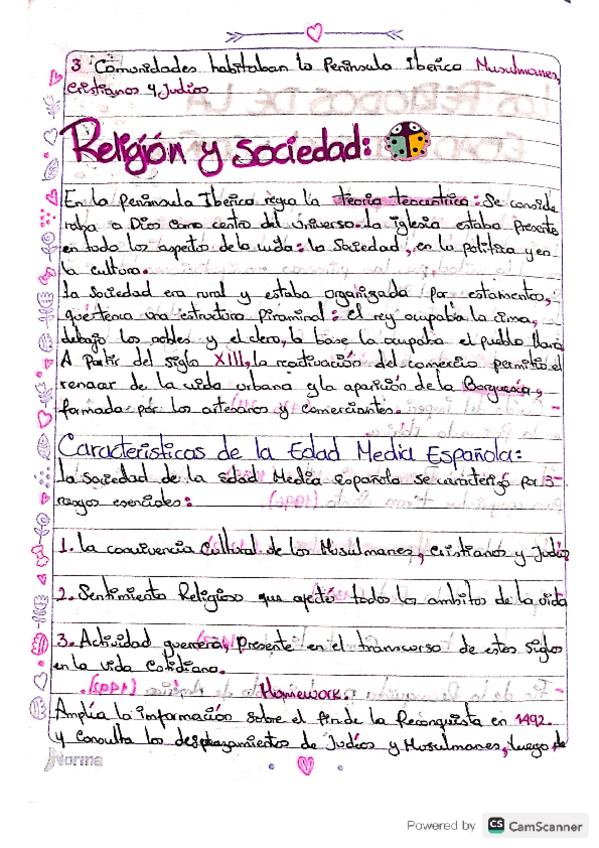 3 Comunidades habitaban la Peninsula Iberica Musulmanes,
Cristianos y Judios
Religión y sociedad:
En la Peninsula Iberica regia la teoria teocentrica: Se conside
raba a Dios como centro del Universo. La iglesia estaba presente
en todo los aspetos de la vida: la Sociedad, en la politica y en
la cultura.
La Sociedad era rural y estaba organizada por estamentos,
que tenia una estructura piraminal: el rey ocupaba la cima,
debajo los nobles y el clero, la base la ocupaba el pueblo llano
A partir del siglo XIII, la reactivación del comercio permitio el
renacer de la vida urbana y la aparición de la Borguesia,
formada por los artesanos y comerciantes.
Caracteristicas de la Edad Media Española:
La sociedad de la Edad Media española se caracterizo por 3-
rasgos esenciales:
1. La convivencia Cultural de los Musulmanes, Cristianos y Judios
2. Sentimiento Religioso que afectó todos los ambitos de la vida
3. Actividad guerrera, Presente en el transcurso de estos siglos
en la vida Cotidiana.
Homework.
Amplia la información sobre el fin de la Reconquista en 1492.
y Consulta los desplazamientos de Judios y Musulmanes, luego de
Norma
Powered by CS CamScanner